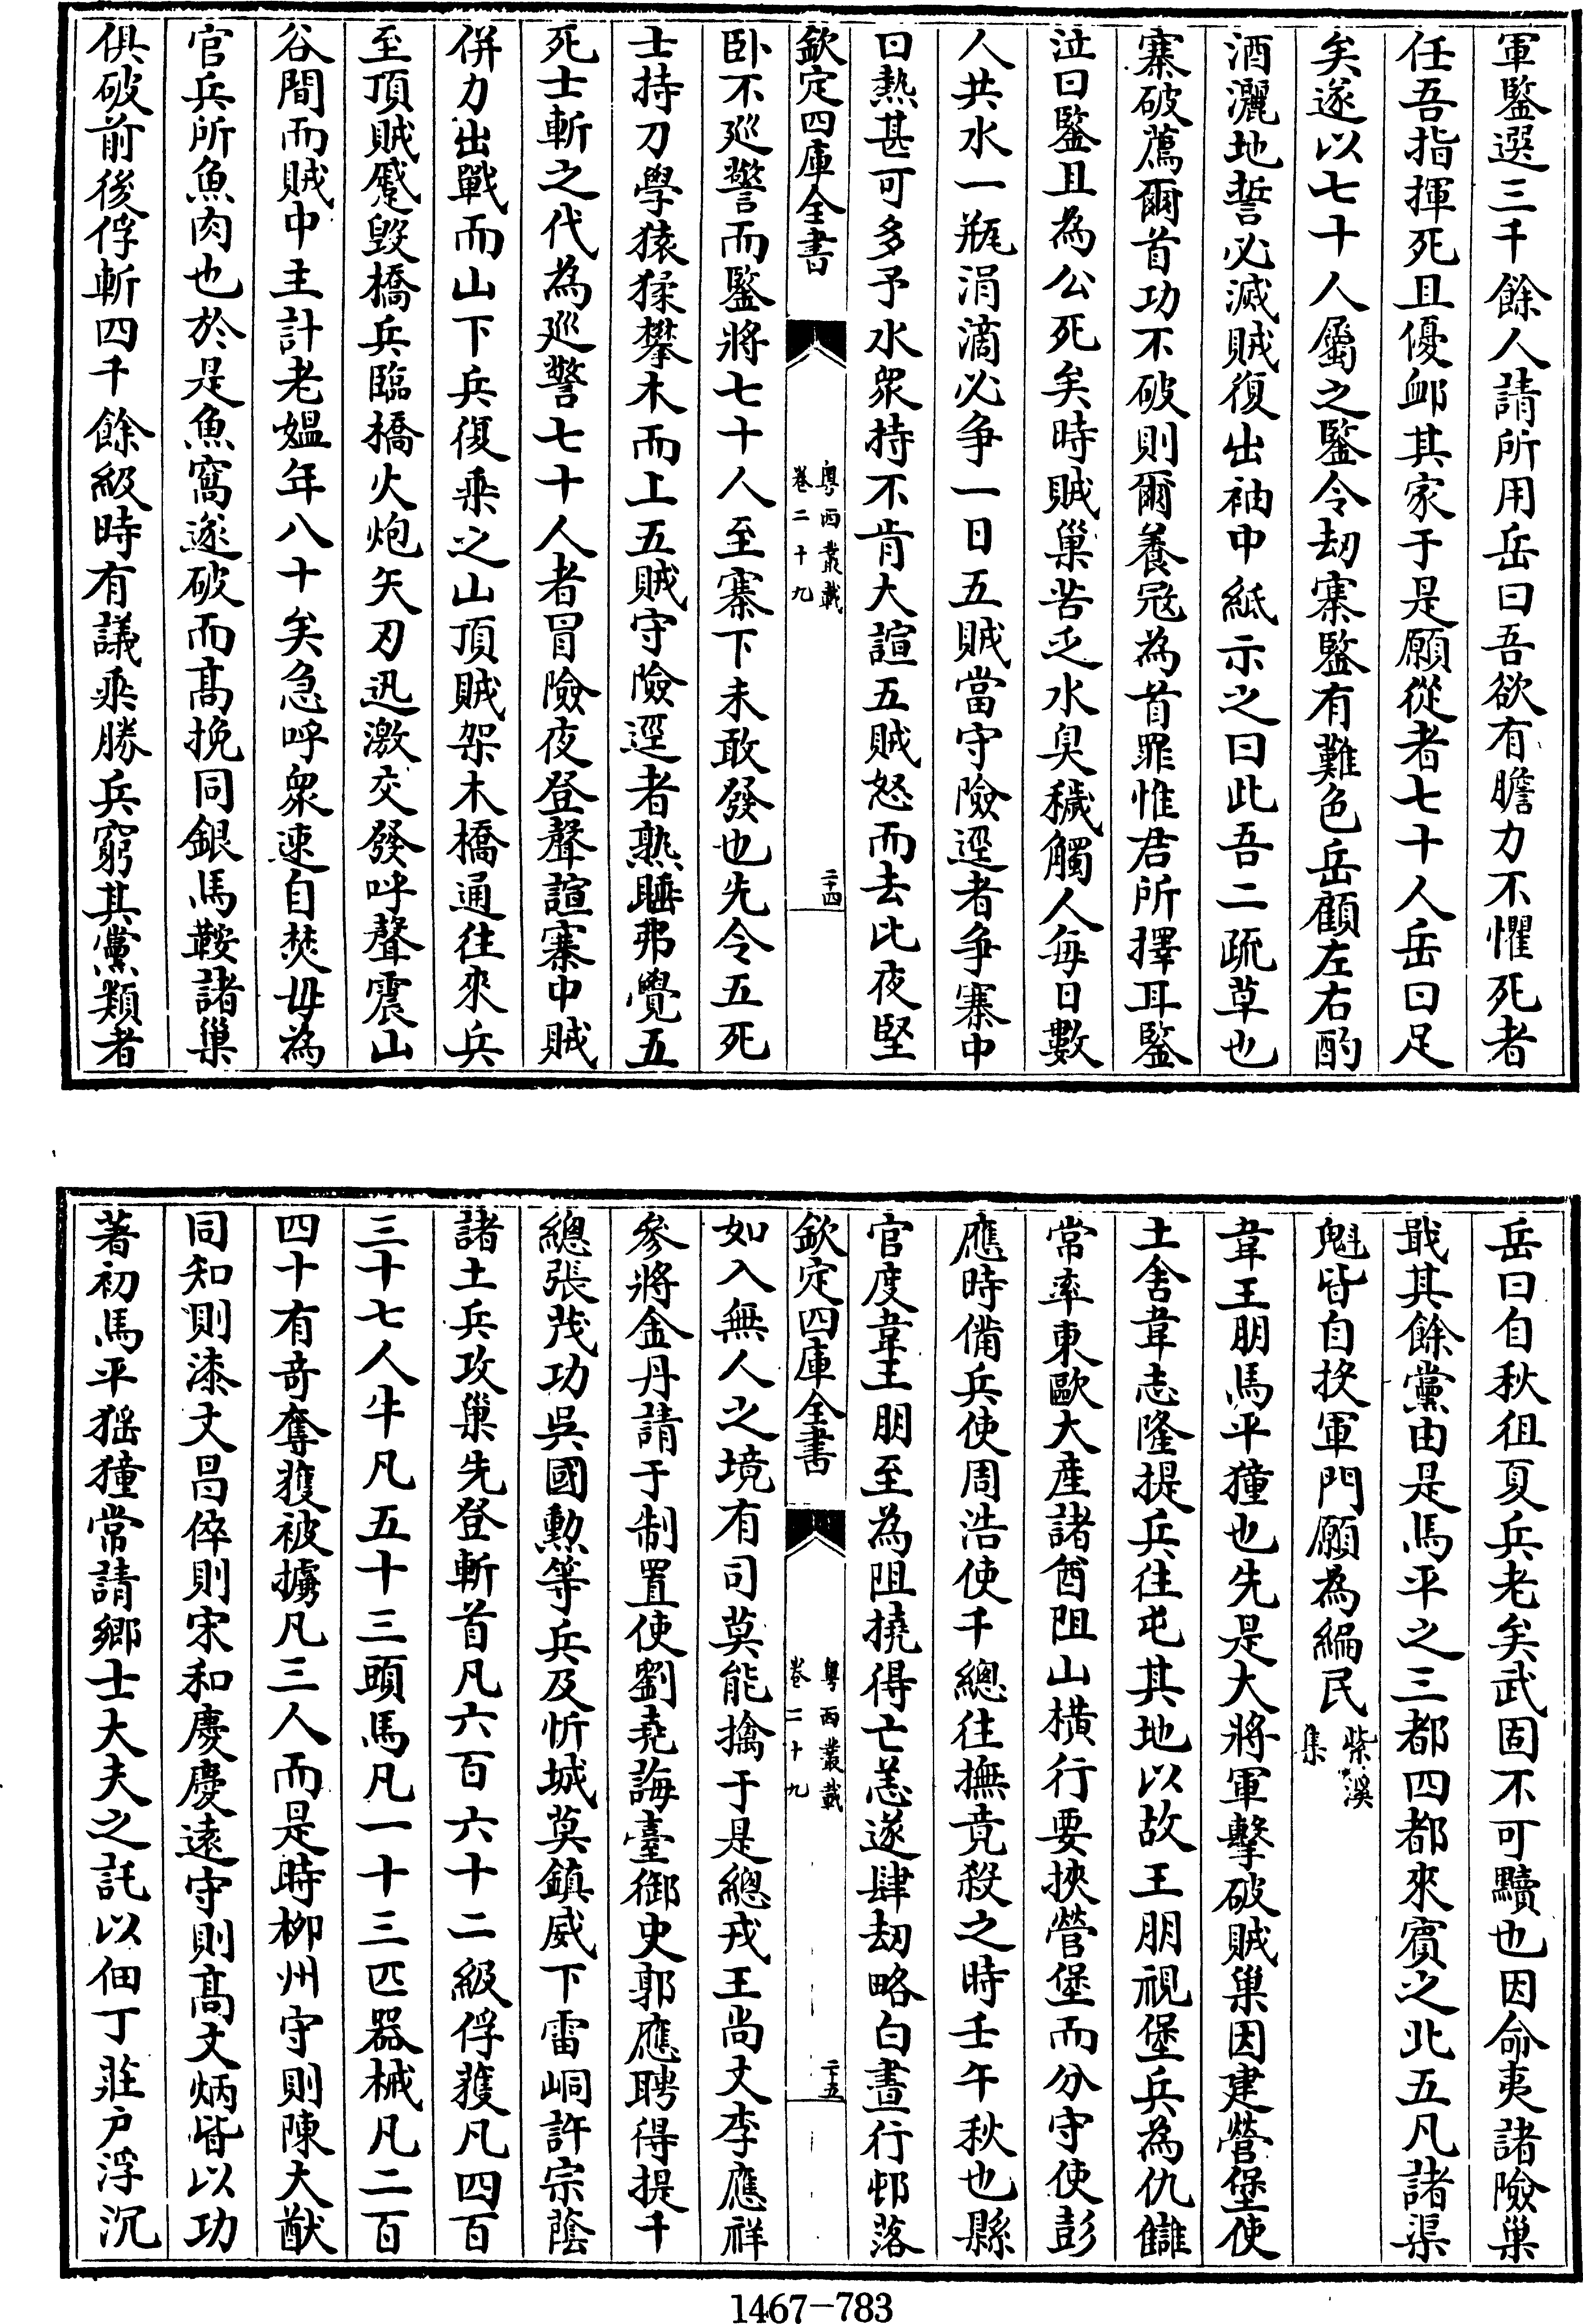 軍鑒選三千餘人請所用岳曰吾欲有膽力不懼死者
任吾指揮死且優䘏其家于是願從者七十人岳曰足
矣遂以七十人屬之鑒令刼寨鑒有難色岳顧左右酌
酒灑地誓必滅賊復出袖中紙示之曰此吾二疏草也
寨破薦爾首功不破則爾養冦為首罪惟君所擇耳鑒
泣曰鑒且為公死矣時賊巢苦乏水臭穢觸人每日數
人共水一瓶涓滴必争一日五賊當守險逕者争寨中
曰熱甚可多予水衆持不肯大諠五賊怒而去比夜堅
欽定四庫全書
粤西叢載
卷二十九
二十四
卧不廵警而鑒將七十人至寨下未敢發也先令五死
士持刀學猿猱攀木而上五賊守險逕者熟睡弗覺五
死士斬之代為廵警七十人者冒險夜登聲諠寨中賊
併力出戰而山下兵復乘之山頂賊架木橋通往來兵
至頂賊蹙毁橋兵臨橋火炮矢刃迅激交發呼聲震山
谷間而賊中主計老媼年八十矣急呼衆速自焚毋為
官兵所魚肉也於是魚窩遂破而髙挽同銀馬鞍諸巢
俱破前後俘斬四千餘級時有議乘勝兵窮其黨類者
岳曰自秋徂夏兵老矣武固不可黷也因命夷諸險巢
戢其餘黨由是馬平之三都四都來賓之北五凡諸渠
魁皆自投軍門願為編民紫溪
集
韋王朋馬平獞也先是大將軍擊破賊巢因建營堡使
土舍韋志隆提兵往屯其地以故王朋視堡兵為仇讎
常率東歐大產諸酋阻山横行要挾營堡而分守使彭
應時備兵使周浩使千總往撫竟殺之時壬午秋也縣
官度韋王朋至為阻撓得亡恙遂肆刼略白晝行邨落
欽定四庫全書
粤西叢載
卷二十九
二十五
如入無人之境有司莫能擒于是總戎王尚文李應祥
參將金丹請于制置使劉堯誨臺御史郭應聘得提千
總張茂功吳國勲等兵及忻城莫鎮威下雷峒許宗蔭
諸土兵攻巢先登斬首凡六百六十二級俘獲凡四百
三十七人牛凡五十三頭馬凡一十三匹器械凡二百
四十有竒奪獲被擄凡三人而是時栁州守則陳大猷
同知則漆文昌倅則宋和慶慶逺守則髙文炳皆以功
著初馬平猺獞常請鄉士大夫之託以佃丁莊户浮沉
1467-783